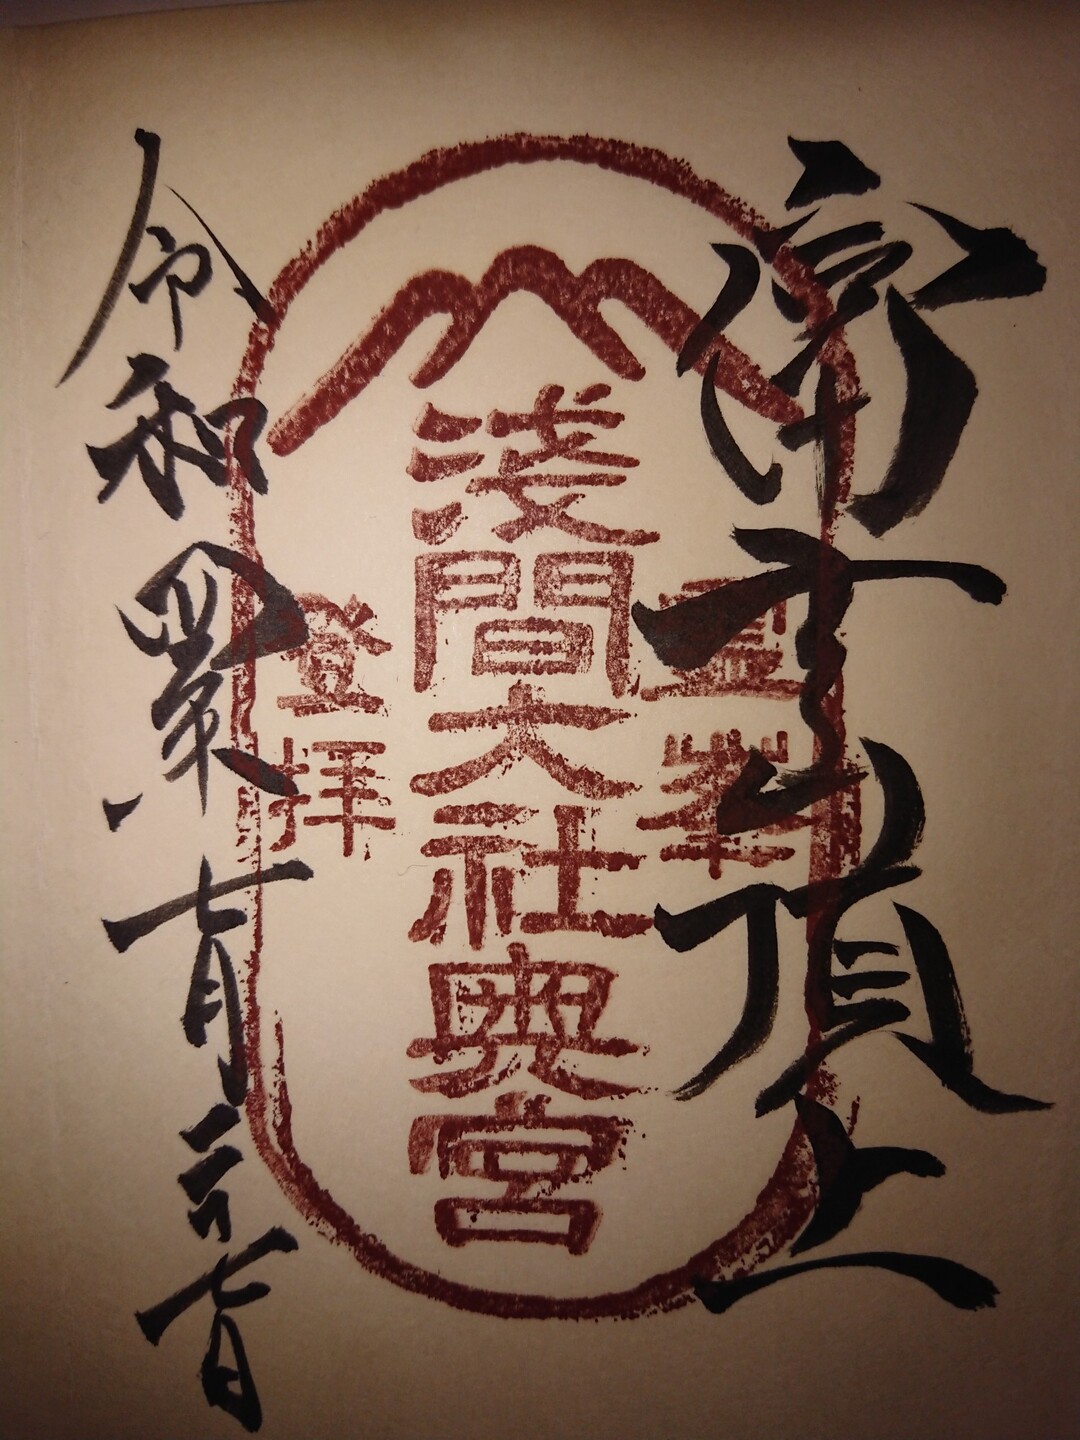 富士山頂上
淺間大社奥宮
登拝
令和四年七月二十七日